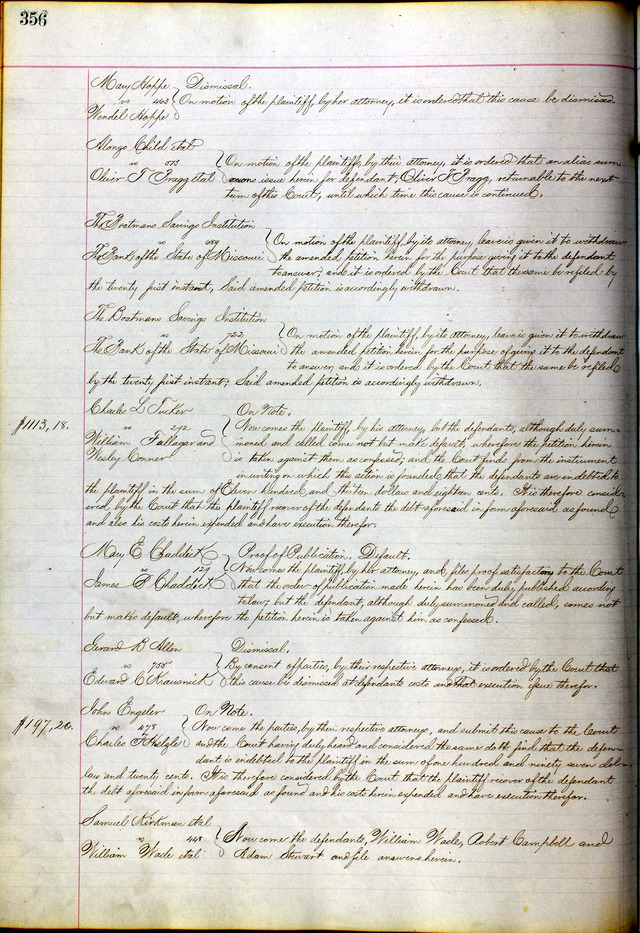 356
Mary Hoppe Dismissal.
vs 443 } On motion of the plaintiff, by her attorney, it is ordered that this cause be dismissed.
Wendel Hoppe
Alonzo Child etal
vs 573 } On motion of the plaintiffs, by their attorney, it is ordered that an alias sum
Oliver F Fragg etal mons issue herein for defendant, Oliver F Fragg, returnable to the next
term of this Court, until which time this cause is continued.
The Boatmans Savings Institution
vs } On motion of the plaintiff, by its attorney, leave is given it to withdraw
The Bank of the State of Missouri the amended petition herein for the purpose giving it to the defendant
to answer; and it is ordered by the Court that the same be refiled by
the twenty first instant; Said amended petition is accordingly withdrawn.
The Boatmans Savings Institution
vs 722 } On motion of the plaintiff, by its attorney, leave is given it to withdraw
The Bank of the State of Missouri the amended petition herein for the purpose of giving it to the defendant
to answer, and it is ordered by the Court that the same be refiled
by the twenty first instant; Said amended petition is accordingly withdrawn.
Charles L Tucker On Note.
$1113,18. vs 292 } Now comes the plaintiff, by his attorney, but the defendants, although duly sum-
William Tallager and moned and called come not but make default, wherefore the petition herein
Wesley Conner is taken against them as confessed; and the Court finds from the instrument
in writing on which this action is founded that the defendants are indebted to
the plaintiff in the sum of Eleven hundred and thirteen dollars and eighteen cents. It is therefore consid-
ered by the Court that the plaintiff recover of the defendants the debt aforesaid in form aforesaid as found
and also his costs herein expended and have execution therefor.
Mary E. Chaddick Proof of Publication. Default.
vs 129 } Now comes the plaintiff by her attorney, and files proof satisfactory to the Court
James P Chaddick that the order of publication made herein has been duly published according
to law, but the defendant, although duly summoned and called, comes not
but makes default; wherefore the petition herein is taken against him as confessed.
Gerard B Allen Dismissal.
vs 755 } By consent of parties, by their respective attorneys, it is ordered by the Court that
Edward C Krausnick this cause be dismissed at defendants costs and that execution issue therefor.
John Engeler On Note.
$197,20. vs 478 } Now come the parties, by their respective attorneys, and submit this cause to the Court
Charles F and the Court having duly heard and considered the same doth find that the defen-
dant is indebted to the plaintiff in the sum of one hundred and ninety seven dol-
lars and twenty cents. It is therefore considered by the Court that the plaintiff recover of the defendant
the debt aforesaid in form aforesaid as found and his costs herein expended and have execution therefor.
Samuel Kirkman etal
vs 448 } Now come the defendants, William Wade, Robert Campbell and
William Wade etal Adam Stewart and file answers herein.